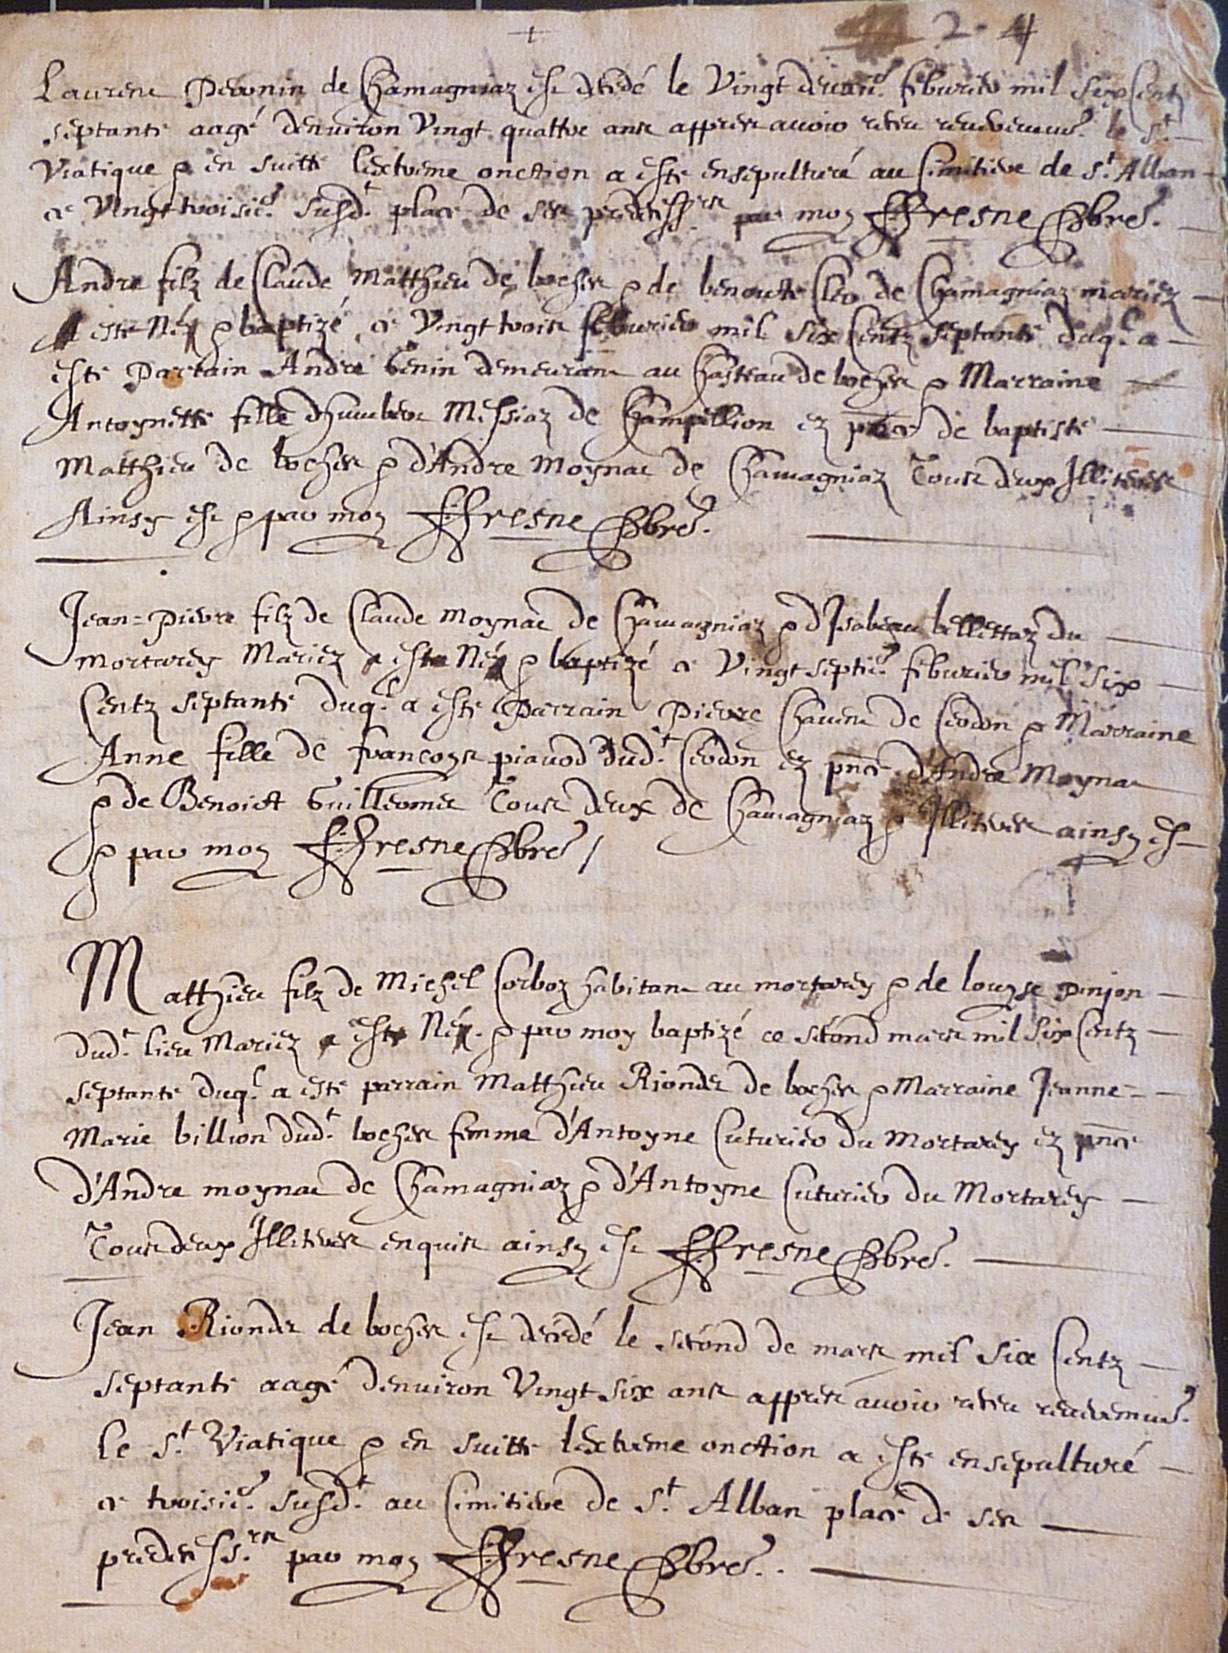 2. 4
Laurent Peronin de Chamagniaz est decedé le Vingt deux.e feburier mil six Centz
septante aagé denuiron Vingt quattre ans appres auoir receu reueremm.t le S.t
Viatique & en suitte lextreme onction a esté ensepulturé au Cimitiere de S.t Alban
ce Vingt troisie.e susd.t place de ses predecess.rs par moy Ffresne Pbre.
Andre filz de Claude Matthieu de boches & de benoite Cler de Chamagniaz mariez
a esté Né & baptizé ce Vingt trois feburier mil six Centz septante duq.l a
esté Parrain Andre Genin demeurant au Chasteau de boches & Marraine
Antoynette fille dhumbert Messiaz de Champillion ez pnce de baptiste
Matthieu de boches & d'Andre Moynat de Chamagniaz Tous deux Illiteres
Ainsy est & par moy Ffresne Pbre.
Jean=Pierre filz de Claude Moynat de Chamagniaz & d'Isabeau bellettaz du
mortarey Mariez a esté Né & baptizé ce Vingt septie.e feburier mil six
Centz septante duq.l a esté Parrain Pierre Chavent de Cerdon & Marraine
Anne fille de francoys piauod dud.t Cerdon ez pnce d'Andre Moynat
& de Benoict Guillermet Tous deux de Chamagniaz & Illiteres ainsy est
& par moy Ffresne Pbre /
Matthieu filz de Michel Corboz habitant au mortarey & de louyse pinjon
dud.t lieu Mariez a esté Né & par moy baptizé ce second mars mil six Centz
septante duq.l a esté parrain Matthieu Riondet de boches & Marraine Jeanne=
Marie billion dud.t boches femme d'Antoyne Cuturier du Mortarey ez pnce
d'Andre moynat de Chamagniaz & d'Antoyne Cuturier du Mortarey
Tous deux Illiteres enquis ainsy est Ffresne Pbre.
Jean Riondet de boches est decedé le second de mars mil six Centz
septante aagé denuiron Vingt six ans appres auoir receu reueremm.t
le S.t Viatique & en suitte lextreme onction a esté ensepulturé
ce troisie.e susd.t au Cimitiere de S.t Alban place de ses
predecess.rs par moy Ffresne Pbre.